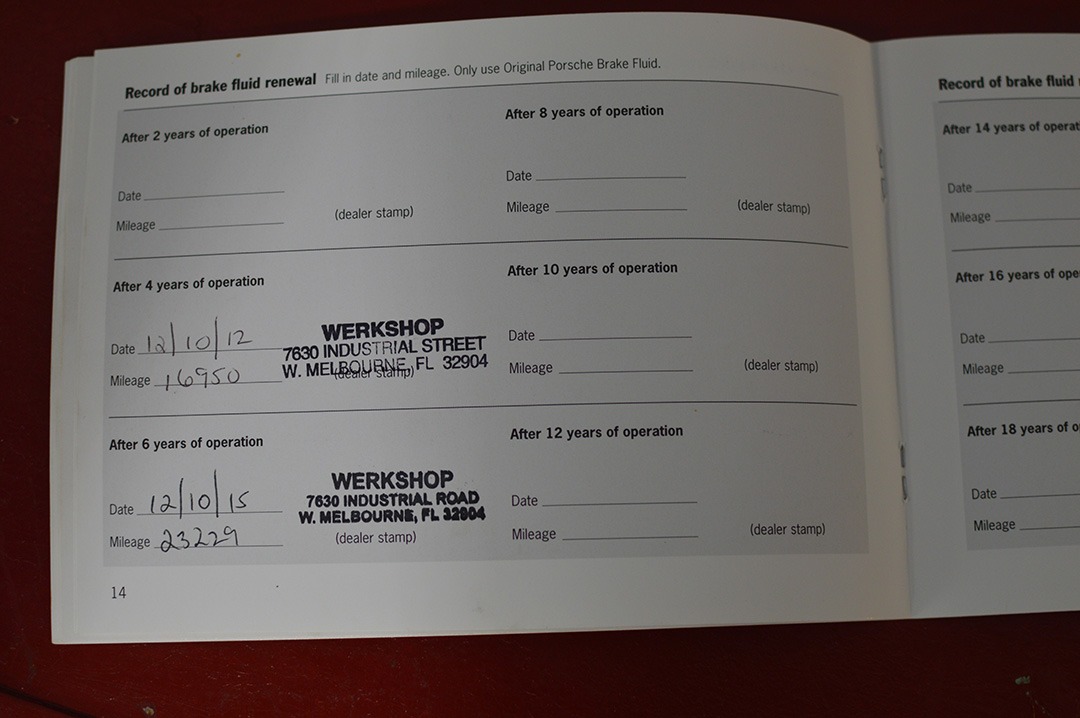 Record of brake fluid renewal Fill in date and mileage. Only use Original Porsche Brake Fluid.
After 2 years of operation
Date
Mileage
(dealer stamp)
After 4 years of operation
Date 12/10/12
Mileage 16950
WERKSHOP
7630 INDUSTRIAL STREET
W. MELBOURNE, FL 32904
(dealer stamp)
After 6 years of operation
Date 12/10/15
Mileage 23229
WERKSHOP
7630 INDUSTRIAL ROAD
W. MELBOURNE, FL 32904
(dealer stamp)
After 8 years of operation
Date
Mileage
(dealer stamp)
After 10 years of operation
Date
Mileage
(dealer stamp)
After 12 years of operation
Date
Mileage
(dealer stamp)
14
Record of brake fluid
After 14 years of operat
Date
Mileage
After 16 years of ope
Date
Mileage
After 18 years of o
Date
Mileage